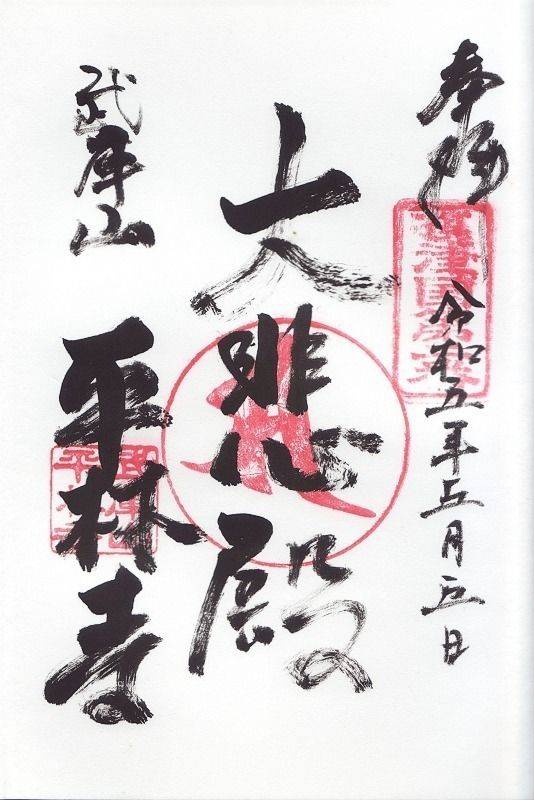 奉拝
令和五年五月五日
大悲殿
武庫山
平林寺